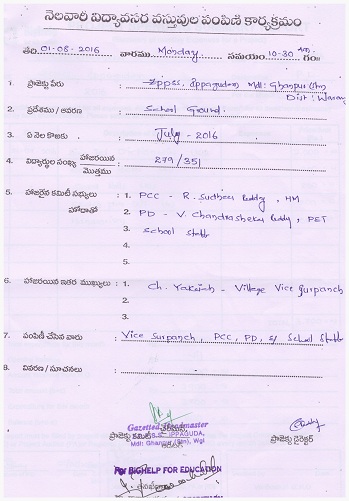 నెలవారీ విద్యావసర వస్తువుల పంపిణీ కార్యక్రమం
తేది: 01-08-2016 వారము Monday సమయం: 10-30 am గం॥
1. ప్రాజెక్టు పేరు : ZPPSS, Ippaguda Mdl: Ghanpur (Stn)
Dist: Warangal
2. ప్రదేశము / ఆవరణ : School Ground.
3. ఏ నెల కొఱకు : July - 2016
4. విద్యార్థుల సంఖ్య హాజరయిన మొత్తము : 279/351
5. హాజరైన కమిటీ సభ్యులు : 1. PCC - R. Sudheer Reddy, HM
హోదాతో 2. PD - V. Chandrasheker Reddy, PET
3. School Staff
4.
5.
6. హాజరయిన ఇతర ముఖ్యులు : 1. Ch. Yakaiah - Village Vice Surpanch
2.
3.
7. పంపిణీ చేసిన వారు : Vice Surpanch, PCC, PD, & School Staff
8. వివరణ / సూచనలు :
Gazetted Headmaster
ప్రాజెక్టు కమిటీ ప్రాజెక్టు డైరెక్టర్
IPPAGUDA,
Mdl: Ghanpur (Stn), Wgl
For BIGHELP FOR EDUCATION